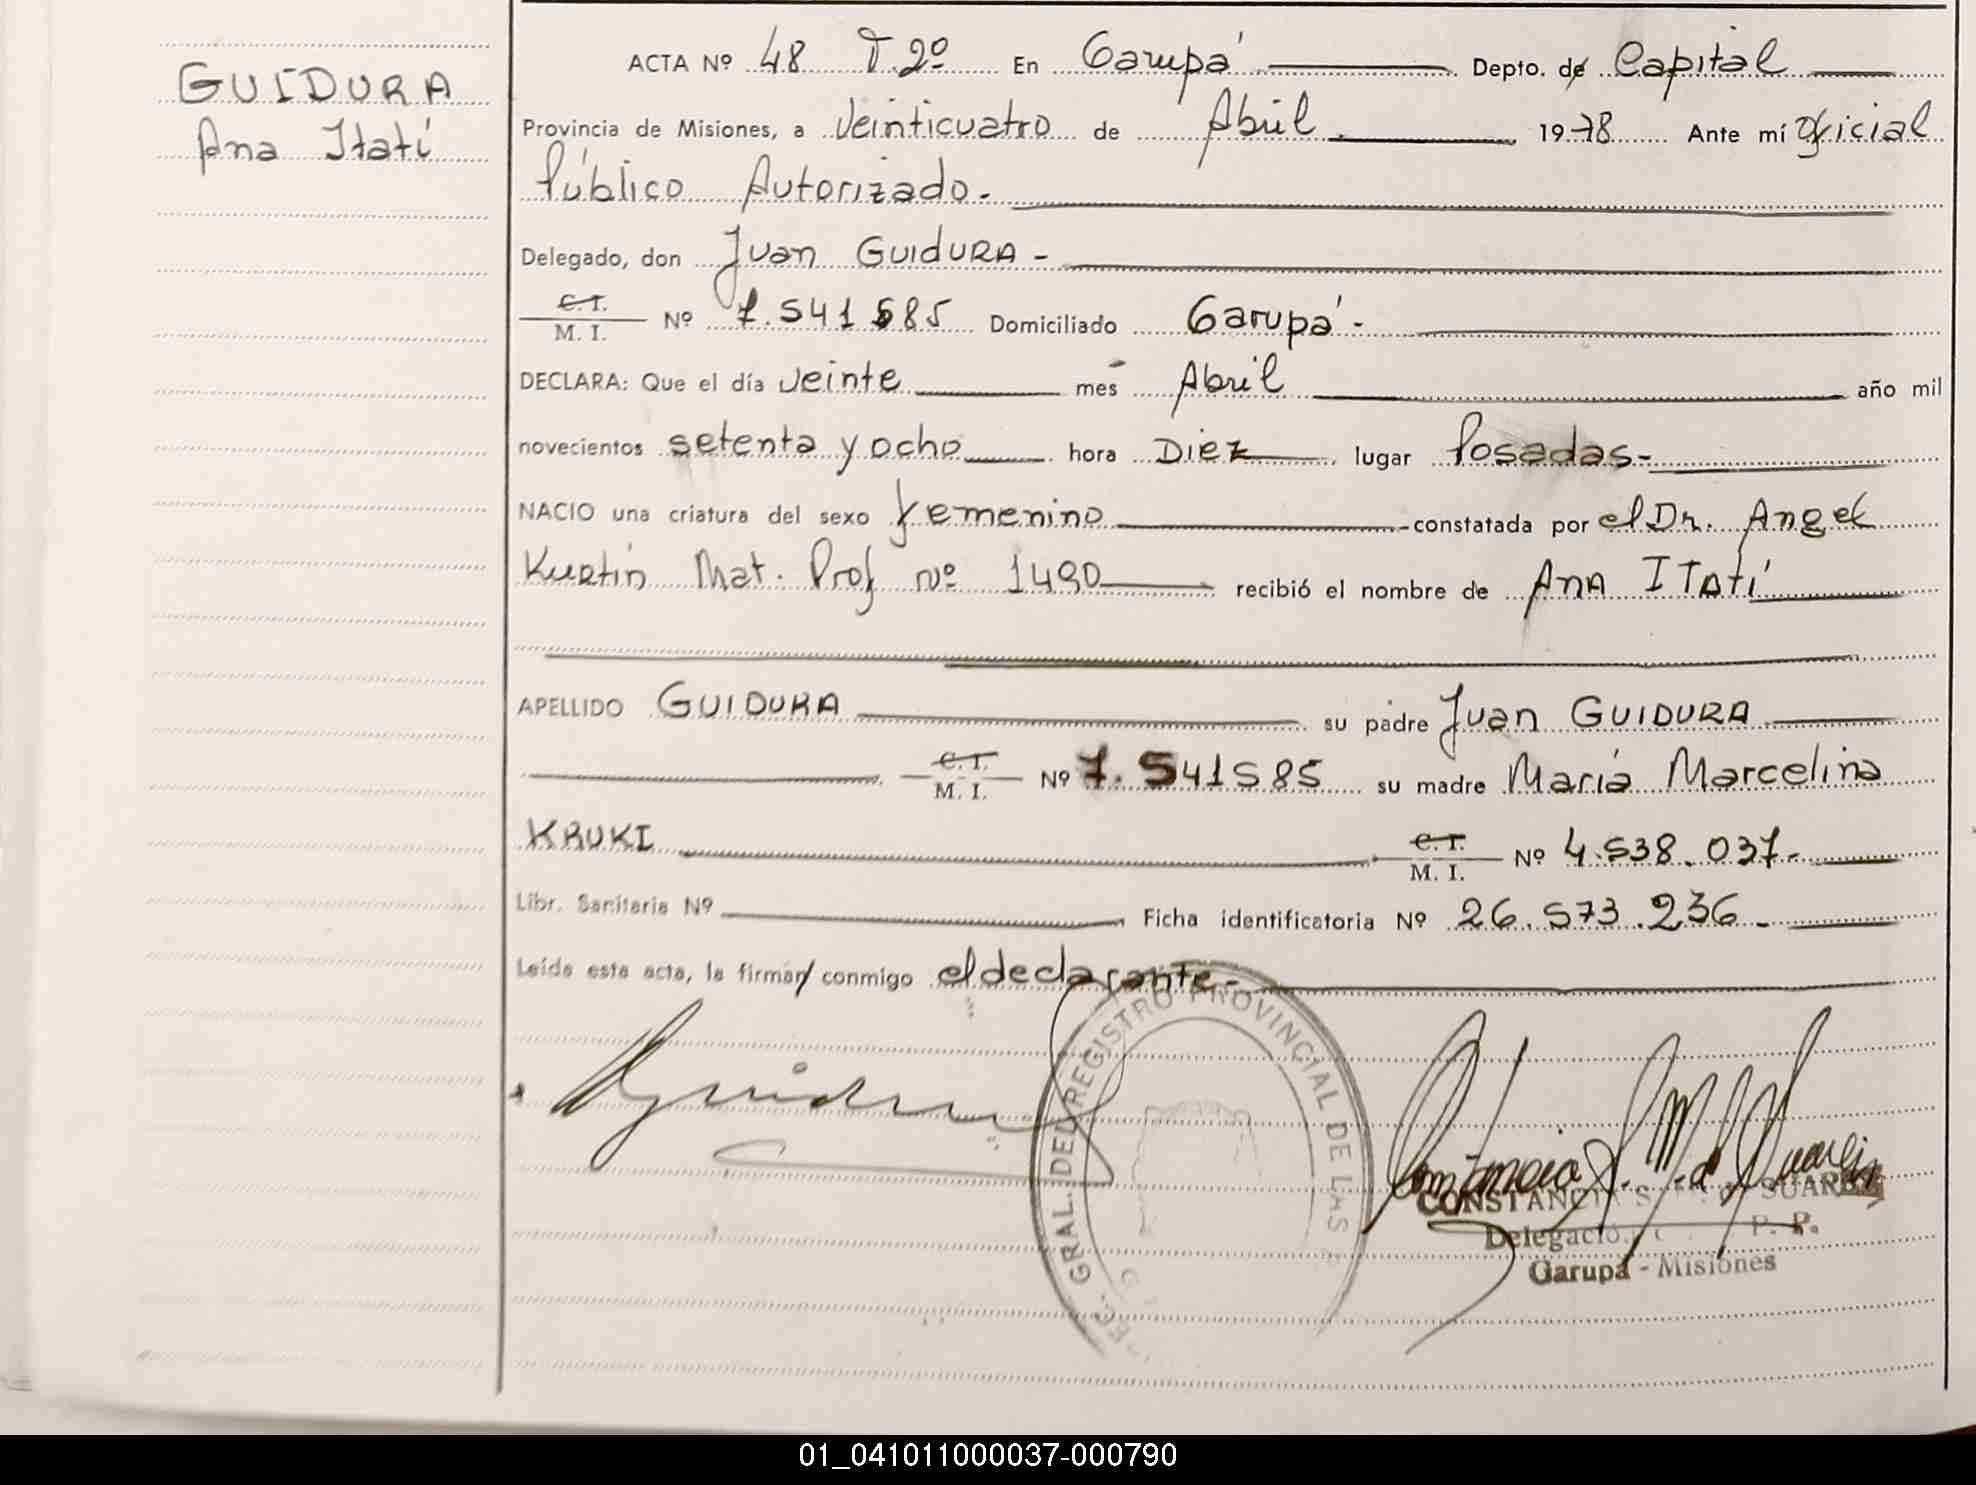 GUIDURA
Ana Itatí
ACTA Nº 48 T. 2º En Garupá Depto. de Capital
Provincia de Misiones, a Veinticuatro de Abril 1978 Ante mí Oficial
Público Autorizado.-
Delegado, don Juan GUIDURA -
C. I.
M. I. Nº 7.541585 Domiciliado Garupá.-
DECLARA: Que el día veinte mes Abril año mil
novecientos setenta y ocho hora Diez lugar Posadas-
NACIO una criatura del sexo femenino constatada por el Dr. Angel
Kurtin Mat. Prof nº 1490 recibió el nombre de ANA ITatí
APELLIDO GUIDURA su padre Juan GUIDURA
C. I.
M. I. Nº 7.541585 su madre María Marcelina
KRUKI C. I.
M. I. Nº 4.538.037-
Libr. Sanitaria Nº Ficha identificatoria Nº 26.573.236-
Leída esta acta, la firman conmigo el declarante-
GRAL. DEL REGISTRO PROVINCIAL DE LAS
Garupá - Misiones
01_041011000037-000790